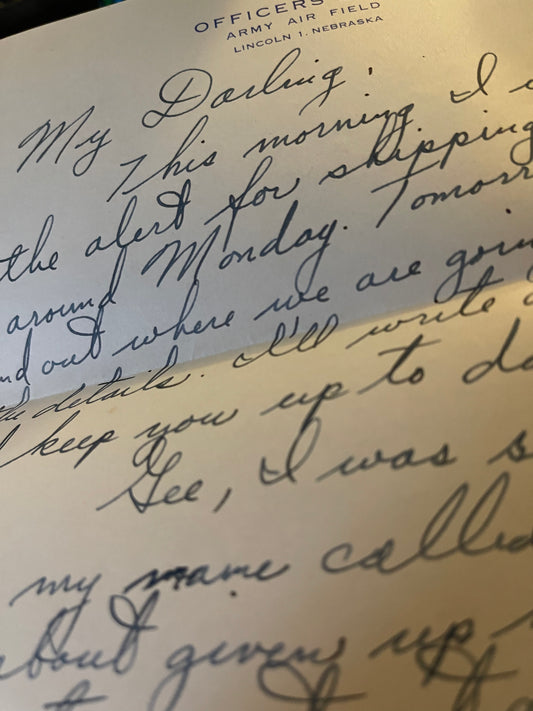 OFFICERS
ARMY AIR FIELD
LINCOLN 1, NEBRASKA
My Darling,
This morning I
the alert for shipping
around Monday. Tomorr
nd out where we are goin
the details. I'll write
keep you up to da
Gee, I was s
my name called
about given up